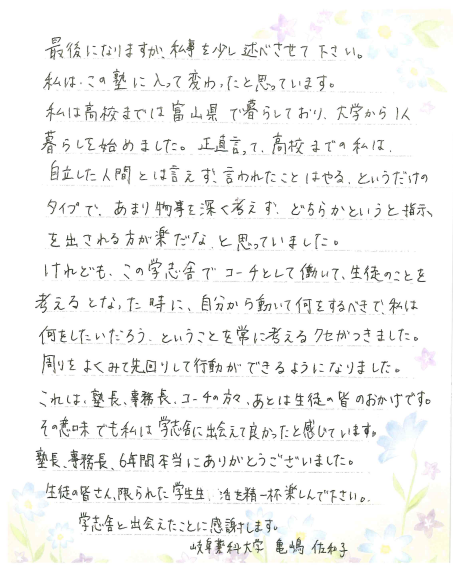 最後になりますが、私事を少し述べさせて下さい。
私は、この塾に入って変わったと思っています。
私は高校までは富山県で暮らしており、大学から1人
暮らしを始めました。正直言って、高校までの私は、
自立した人間とは言えず、言われたことはやる、というだけの
タイプで、あまり物事を深く考えず、どちらかというと指示
を出される方が楽だな、と思っていました。
けれども、この学志舎でコーチとして働いて、生徒のことを
考えるとなった時に、自分から動いて何をするべきで、私は
何をしたいだろう、ということを常に考えるクセがつきました。
周りをよくみて先回りして行動ができるようになりました。
これは、塾長、事務長、コーチの方々、あとは生徒の皆のおかげです。
その意味でも私は学志舎に出会えて良かったと感じています。
塾長、事務長、6年間本当にありがとうございました。
生徒の皆さん、限られた学生生活を精一杯楽しんで下さい。
学志舎と出会えたことに感謝します。
岐阜薬科大学 亀嶋 佐和子